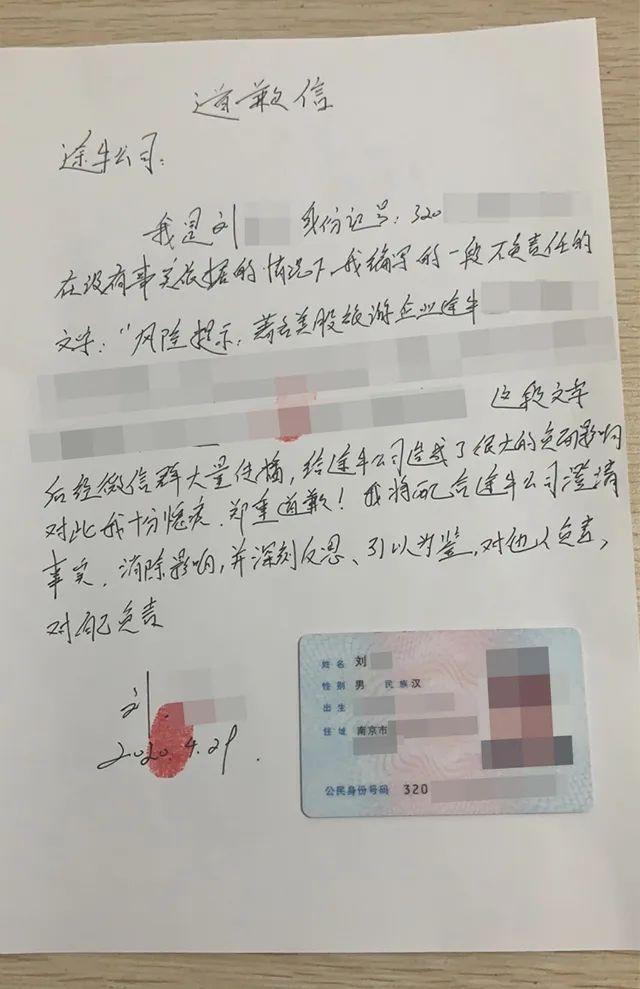 道歉信
途牛公司:
我是刘 身份证号:320
在没有事实依据的情况下,我编写的一段不负责任的
文字:"风险提示:著名美股旅游企业途牛
这段文字
后经微信群大量传播,给途牛公司造成了很大的负面影响
对此我十分愧疚,郑重道歉!我将配合途牛公司澄清
事实,消除影响,并深刻反思、引以为鉴,对他人负责,
对自己负责
刘
2020.4.29.
姓名 刘
性别 男 民族 汉
出生
住址 南京市
公民身份号码 320